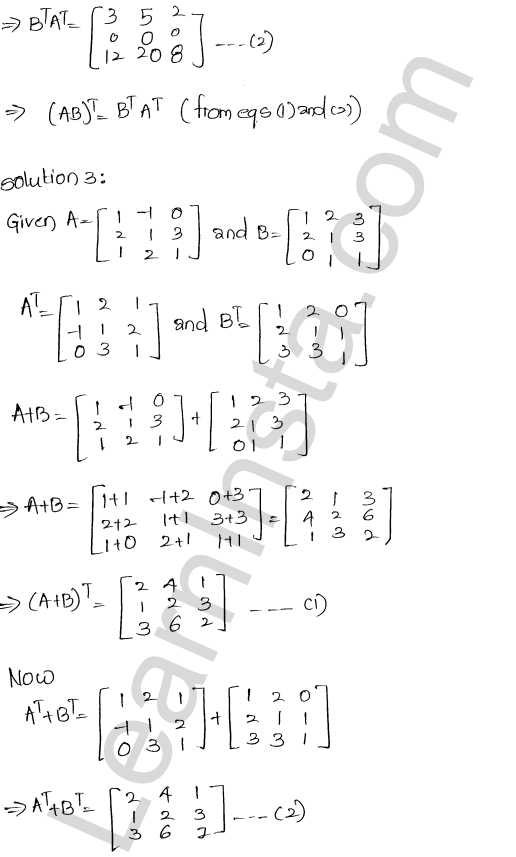 ⇒ BᵀAᵀ = [3 5 2
0 0 0
12 20 8] ---- (2)
⇒ (AB)ᵀ = Bᵀ Aᵀ (from eqs (1) and (2))
Solution 3:
Given A = [1 -1 0
2 1 3
1 2 1] and B = [1 2 3
2 1 3
0 1 1]
Aᵀ = [1 2 1
-1 1 2
0 3 1] and Bᵀ = [1 2 0
2 1 1
3 3 1]
A+B = [1 -1 0
2 1 3
1 2 1] + [1 2 3
2 1 3
0 1 1]
⇒ A+B = [1+1 -1+2 0+3
2+2 1+1 3+3
1+0 2+1 1+1] = [2 1 3
4 2 6
1 3 2]
⇒ (A+B)ᵀ = [2 4 1
1 2 3
3 6 2] ---- (1)
Now
Aᵀ+Bᵀ = [1 2 1
-1 1 2
0 3 1] + [1 2 0
2 1 1
3 3 1]
⇒ Aᵀ+Bᵀ = [2 4 1
1 2 3
3 6 2] ---- (2)
LearnInsta.com